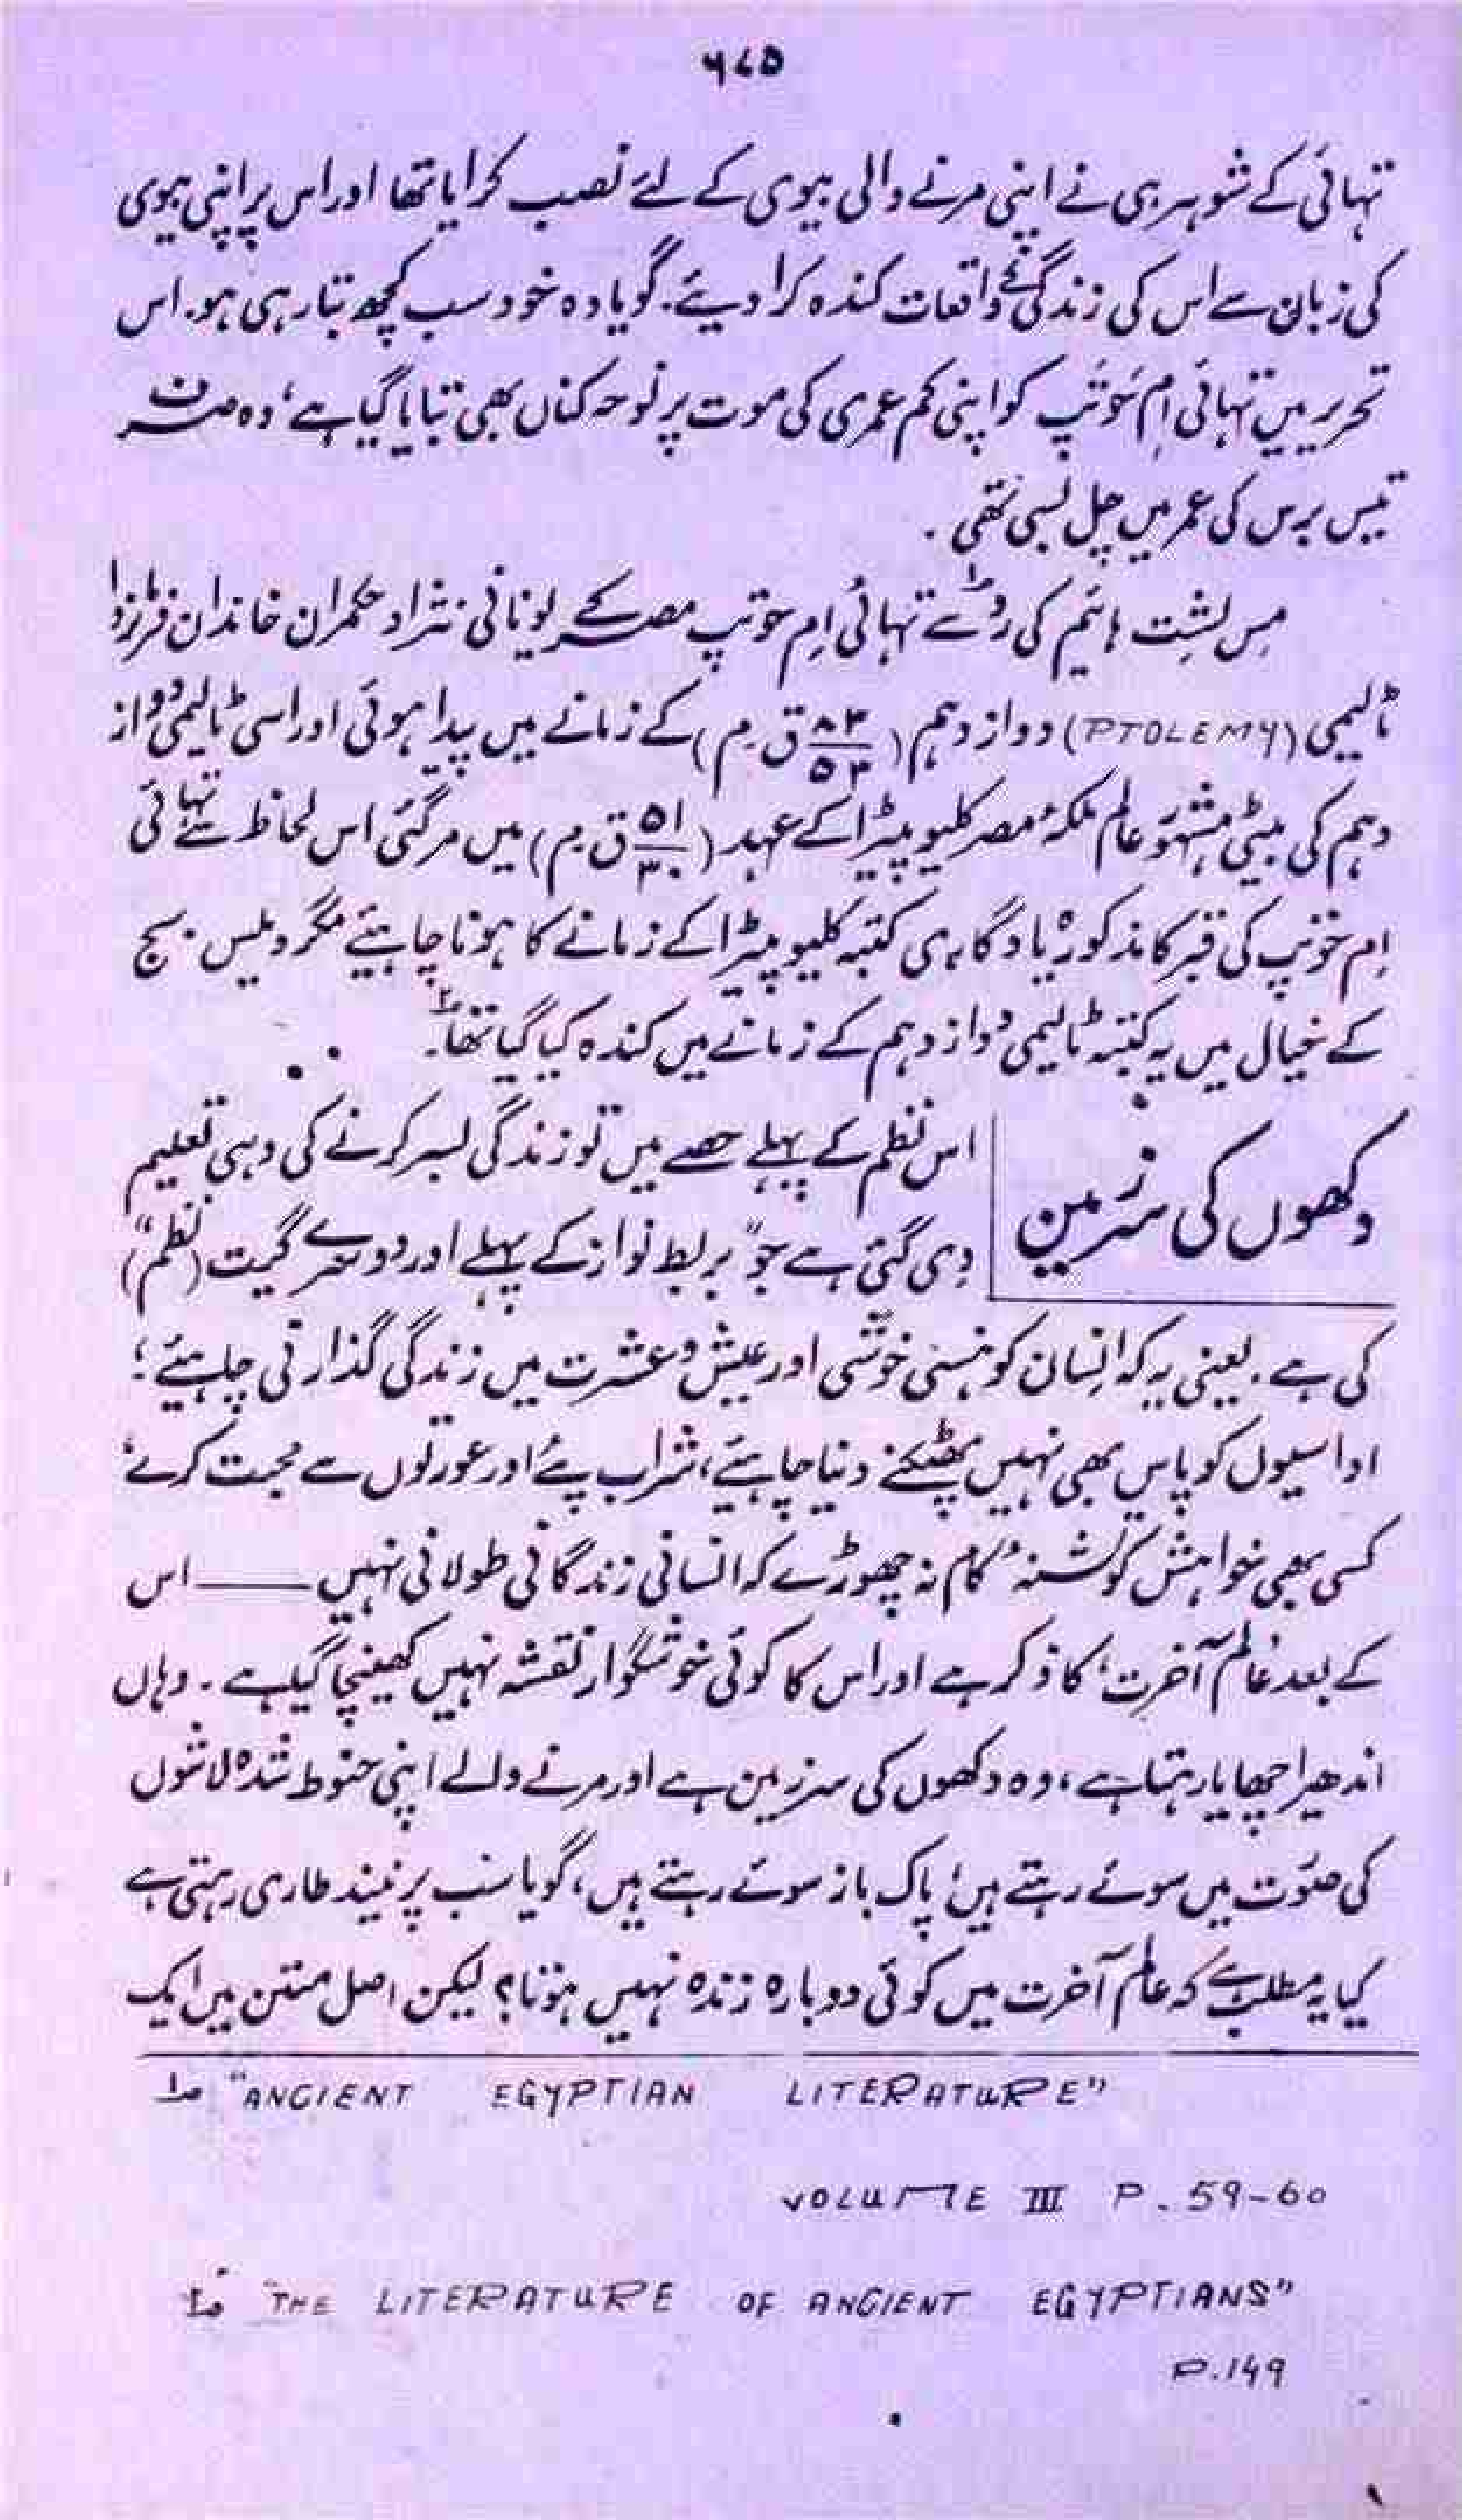 ۶۷۵
تہائی کے شوہر ہی نے اپنی مرنے والی بیوی کے لئے نصب کرایا تھا اور اس پر اپنی بیوی
کی زبان سے اس کی زندگی کے واقعات کندہ کرا دیئے۔ گویا وہ خود سب کچھ بتا رہی ہو۔ اس
تحریر میں تہائی اِم حَوتَپ کو اپنی کم عمری کی موت پر نوحہ کناں بھی بتایا گیا ہے، وہ صرف
تیس برس کی عمر میں چل بسی تھی۔
مِس لِشِت ہائیم کی رو سے تہائی اِم حوتپ مصر کے یونانی نژاد حکمران خاندان فرمانروا
ٹالیمی (PTOLEMY) دوازدہم (۸۰/۵۳ ق۔م) کے زمانے میں پیدا ہوئی اور اسی ٹالیمی دواز
دہم کی بیٹی مشہور عالم ملکۂ مصر کلیوپیٹرا کے عہد (۵۱/۳۰ ق۔م) میں مرگئی اس لحاظ سے تہائی
اِم حوتپ کی قبر کا مذکورہ یادگاری کتبہ کلیوپیٹرا کے زمانے کا ہونا چاہیئے مگر ویلس بج
کے خیال میں یہ کتبہ ٹالیمی دوازدہم کے زمانے میں کندہ کیا گیا تھا۔
دکھوں کی سرزمین
اس نظم کے پہلے حصے میں تو زندگی بسر کرنے کی وہی تعلیم
دی گئی ہے جو "بربط نواز کے پہلے اور دوسرے گیت (نظم)"
کی ہے۔ یعنی یہ کہ انسان کو ہنسی خوشی اور عیش و عشرت میں زندگی گذارنی چاہیئے؛
اداسیوں کو پاس بھی نہیں پھٹکنے دینا چاہیئے، شراب پئے اور عورتوں سے محبت کرے،
کسی بھی خواہش کو تشنہ کام نہ چھوڑے کہ انسانی زندگانی طولانی نہیں —— اس
کے بعد 'عالمِ آخرت' کا ذکر ہے اور اس کا کوئی خوشگوار نقشہ نہیں کھینچا گیا ہے۔ وہاں
اندھیرا چھایا رہتا ہے، وہ دکھوں کی سرزمین ہے اور مرنے والے اپنی حنوط شدہ لاشوں
کی صورت میں سوئے رہتے ہیں، پاک باز سوئے رہتے ہیں، گویا سب پر نیند طاری رہتی ہے
کیا یہ مطلب ہے کہ عالم آخرت میں کوئی دوبارہ زندہ نہیں ہوتا؟ لیکن اصل متن میں ایک
؎۱ "ANCIENT EGYPTIAN LITERATURE"
VOLUME III P. 59-60
؎۲ "THE LITERATURE OF ANCIENT EGYPTIANS"
P. 149